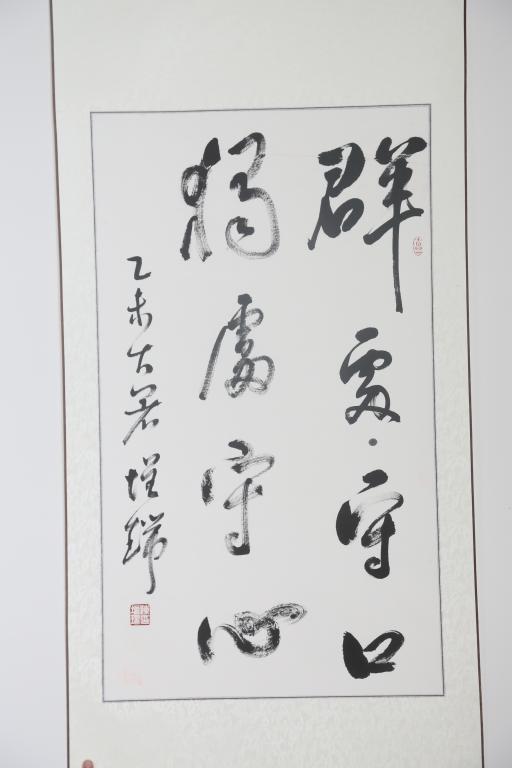 群處守口
獨處守心
乙未大暑